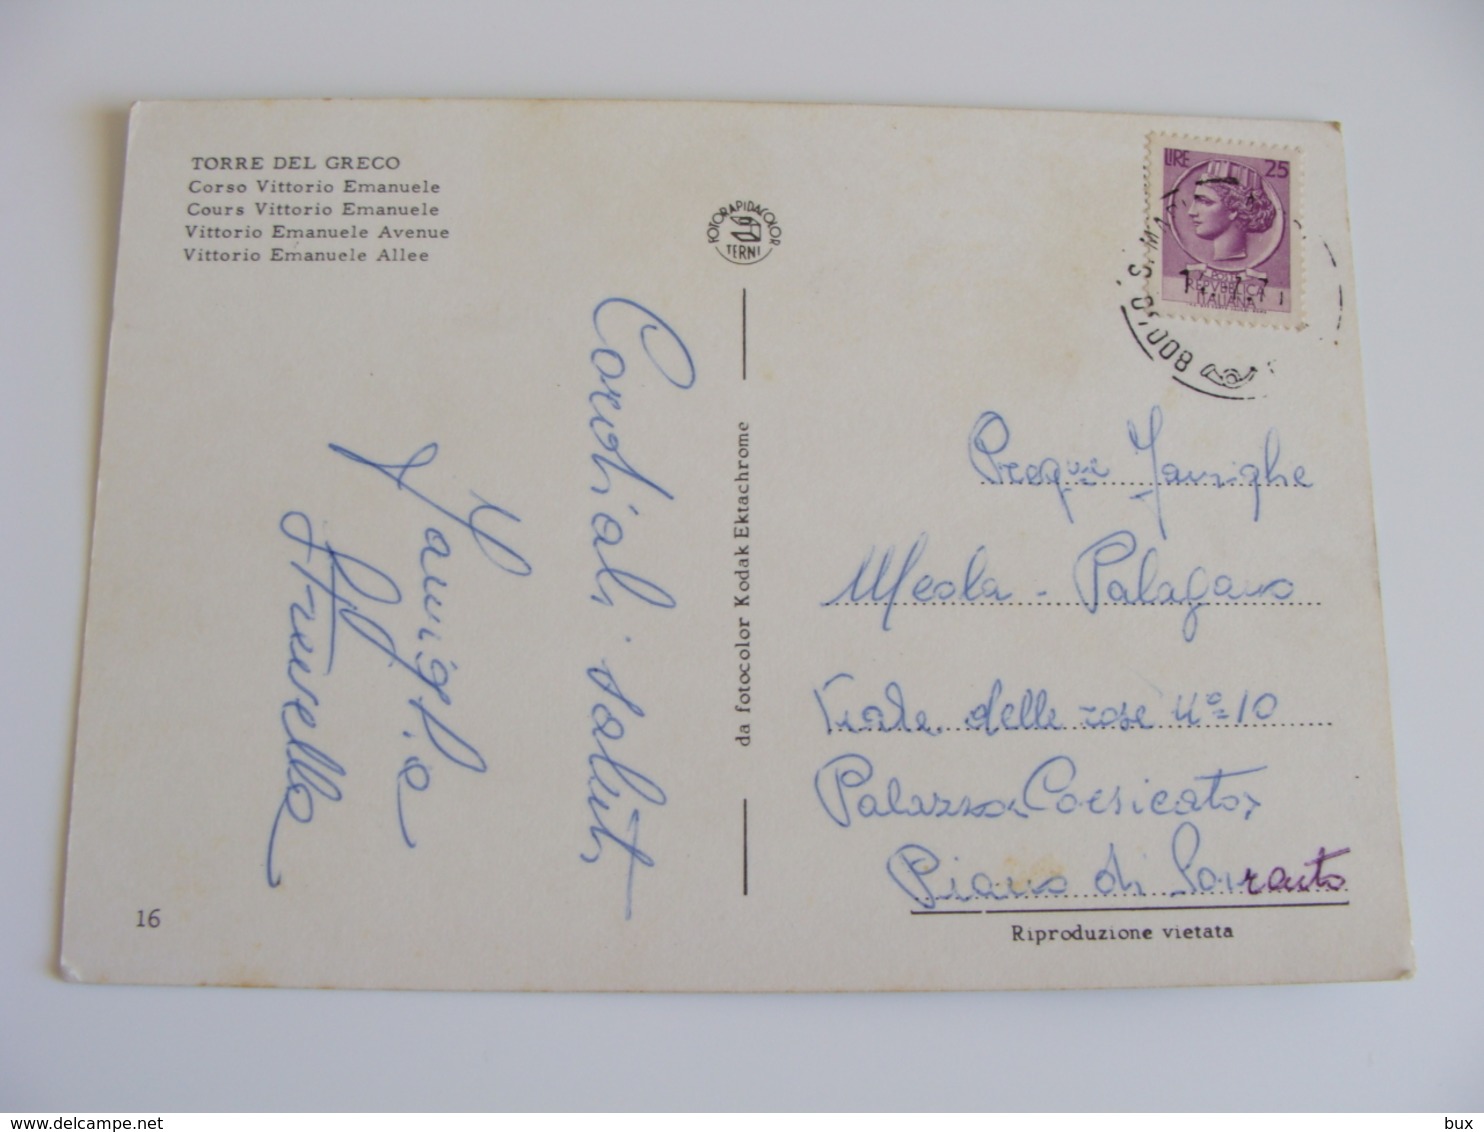 TORRE DEL GRECO
Corso Vittorio Emanuele
Cours Vittorio Emanuele
Vittorio Emanuele Avenue
Vittorio Emanuele Allee
FOTORAPIDACOLOR
TERNI
LIRE 25
POSTE
REPVBBLICA
ITALIANA
Cordiali saluti
Famiglia
da fotocolor Kodak Ektachrome
Famiglie
Meola - Palagano
Viale delle rose nº 10
Palazzo Corsicato,
Piano di Sorrento
Riproduzione vietata
16
delcampe.net
bux